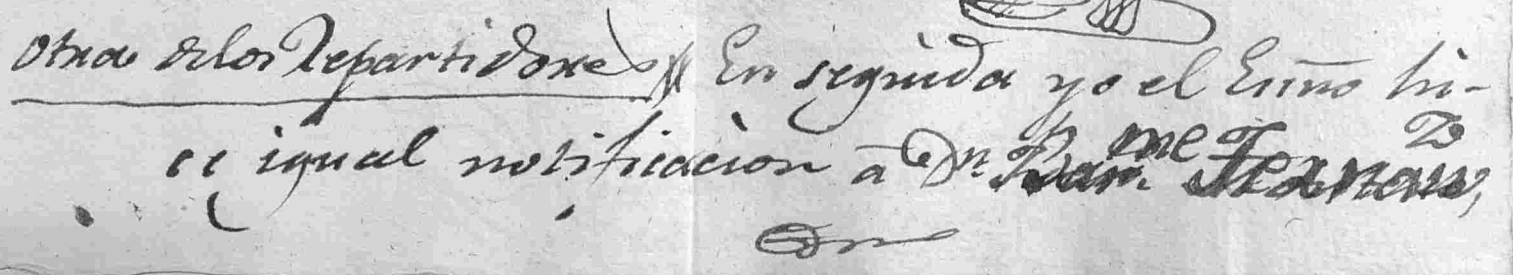 Otra de los Repartidores En seguida yo el Essno hi-
ce igual notificacion á Dn Barme Fernandz,
Dn